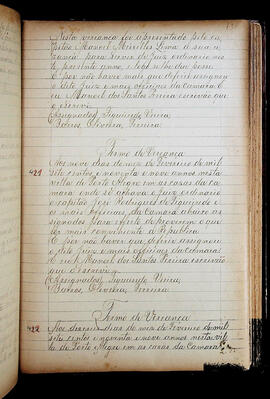 Nesta vereança foi apresentado pelo ca
pitão Manoel Meirelles Lima
para servir de Juiz ordinario
presente anno, e
E por não haver mais que deferir assignou
o dito Juiz e mais officiaes da Camara E
eu Manoel dos Santos Ferreira escrivão que
o escrevi.
Assignados, Siqueira, Vieira,
Barros, Oliveira, Ferreira
Termo de Vereança
421
Aos nove dias do mez de Fevereiro de mil
sete centos e noventa e nove annos nesta
villa de Porto Alegre em as casas da ca
mara onde se achava o Juiz ordinario
o capitão José Rodrigues de Figueiredo e
os mais officiaes da Camara abaixo as
signados para effeito de proverem o que
for mais conveniente á Republica
E por não haver que deferir assignou
o dito Juiz e mais officiaes da Camara
E eu Manoel dos Santos Ferreira escrivão
que o escrevi
Assignados, Figueiredo, Vieira,
Barros, Oliveira, Ferreira
Termo de Vereança
422
Aos dias do mez de Fevereiro de mil
sete centos e noventa e nove annos nesta vil
la de Porto Alegre em as casas da Camara